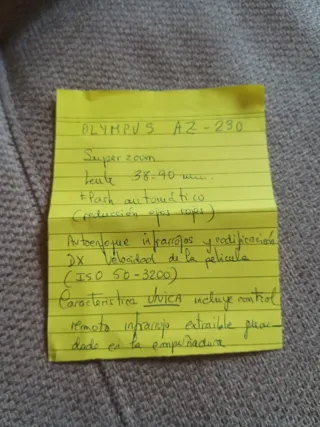 OLYMPUS AZ-230
Superzoom
Lente 38-90 mm.
Flash automático
(reducción ojos rojos)
Autoenfoque infrarrojos y codificación
DX velocidad de la película
(ISO 50-3200)
Característica ÚNICA incluye control
remoto infrarrojo extraible guar-
dado en la empuñadura